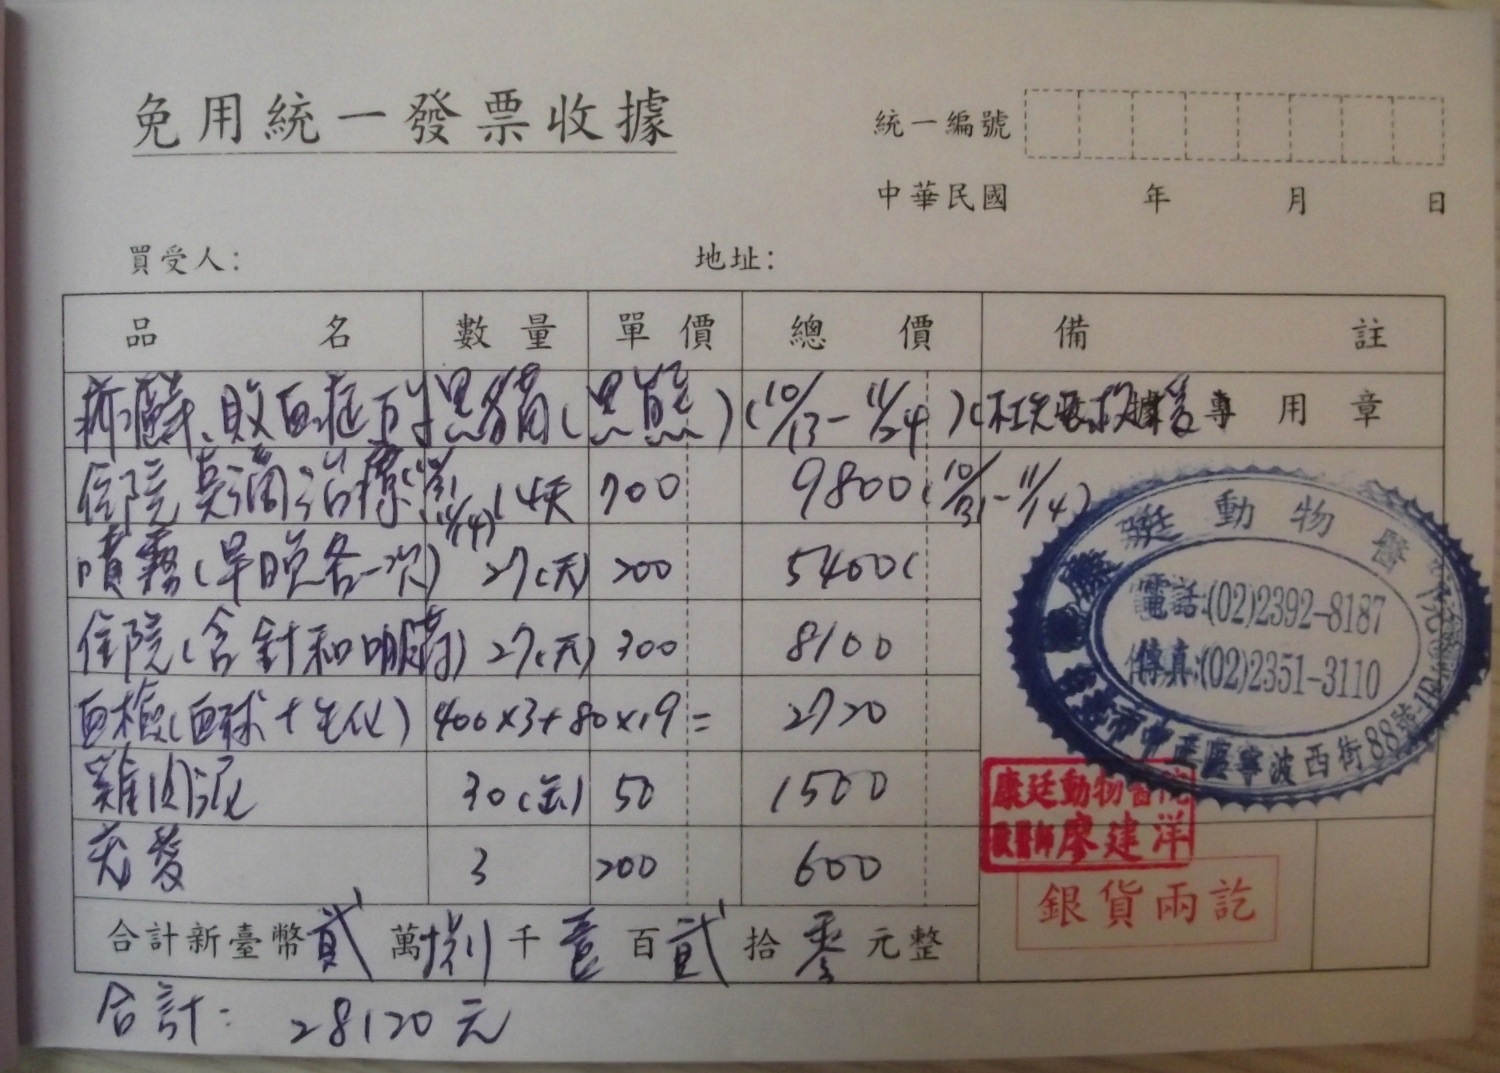 免用統一發票收據
統一編號
中華民國 年 月 日
買受人: 地址:
品名 數量 單價 總價 備註
敗血症 黑 (黑熊) (10/13-11/24) 收據 專用章
住院點滴治療 14天 700 9800(10/31-11/14)
噴霧(早晚各一次) 27(天) 200 5400(
住院(含針和 ) 27(天) 300 8100
血檢(血球+生化) 400×3+80×19= 2720
雞肉泥 30(缶) 50 1500
3 200 600
合計新臺幣貳萬捌千壹百貳拾零元整
合計: 28120元
康廷動物醫院
電話:(02)2392-8187
傳真:(02)2351-3110
台北市中正區寧波西街88號1F
康廷動物醫院
獸醫師廖建洋
銀貨兩訖